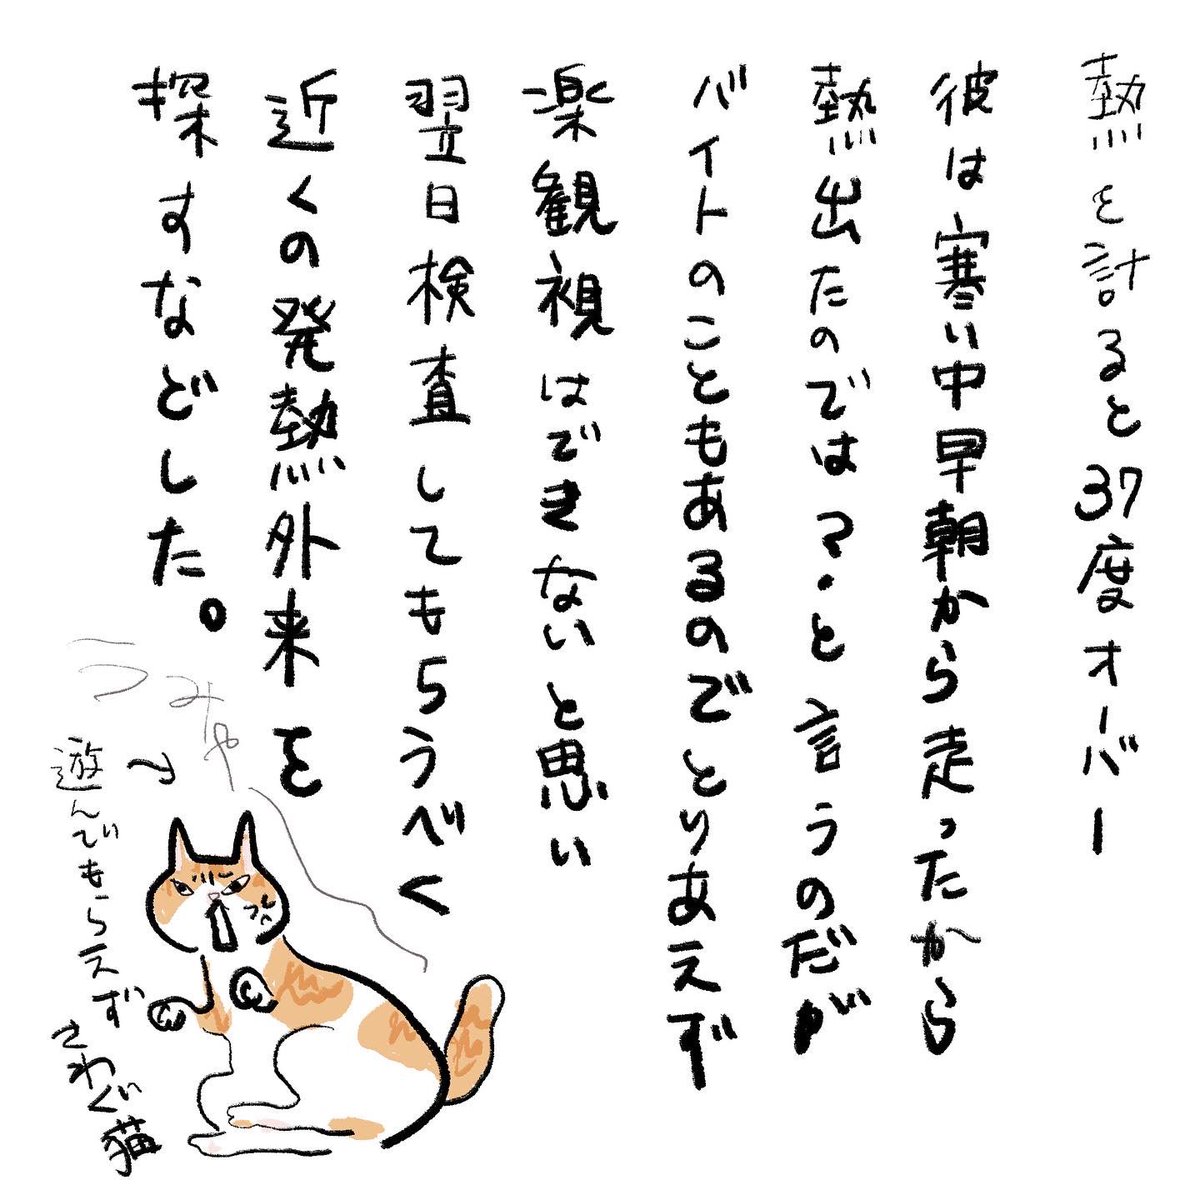 熱を計ると37度オーバー
彼は寒い中早朝から走ったから
熱出たのでは?・と言うのだが
バイトのこともあるのでとりあえず
楽観視はできないと思い
翌日検査してもらうべく
近くの発熱外来を
探すなどした。
うみゃ
遊んでもらえず
さわぐ猫